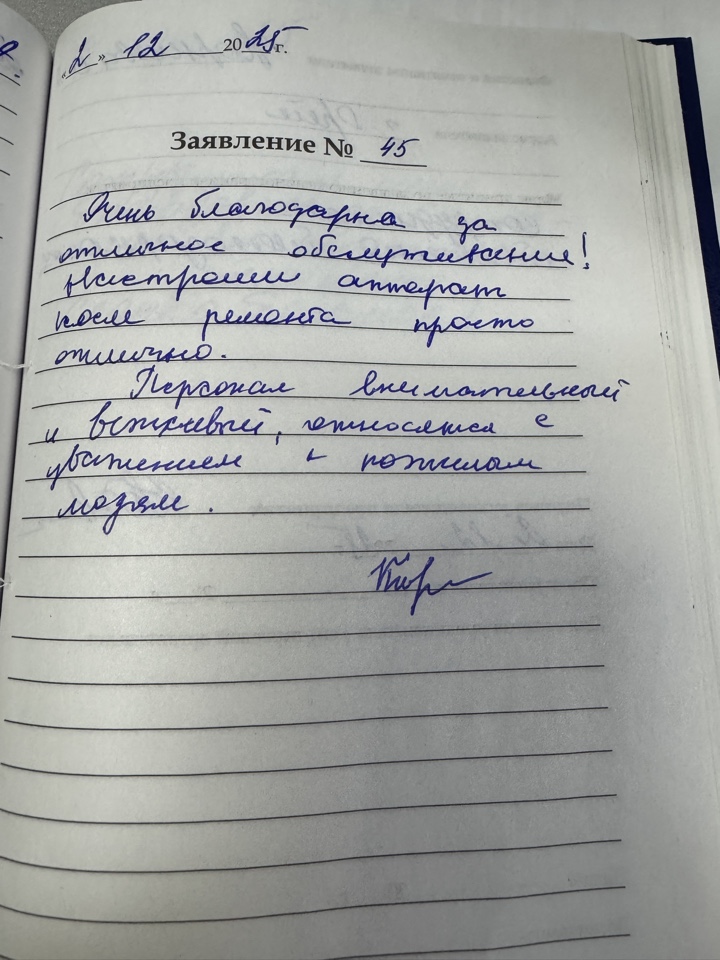 «2» 12 2025г.
Заявление № 45
Очень благодарна за
отличное обслуживание!
Настроили аппарат
после ремонта просто
отлично.
Персонал внимательный
и вежливый, относятся с
уважением к пожилым
людям.